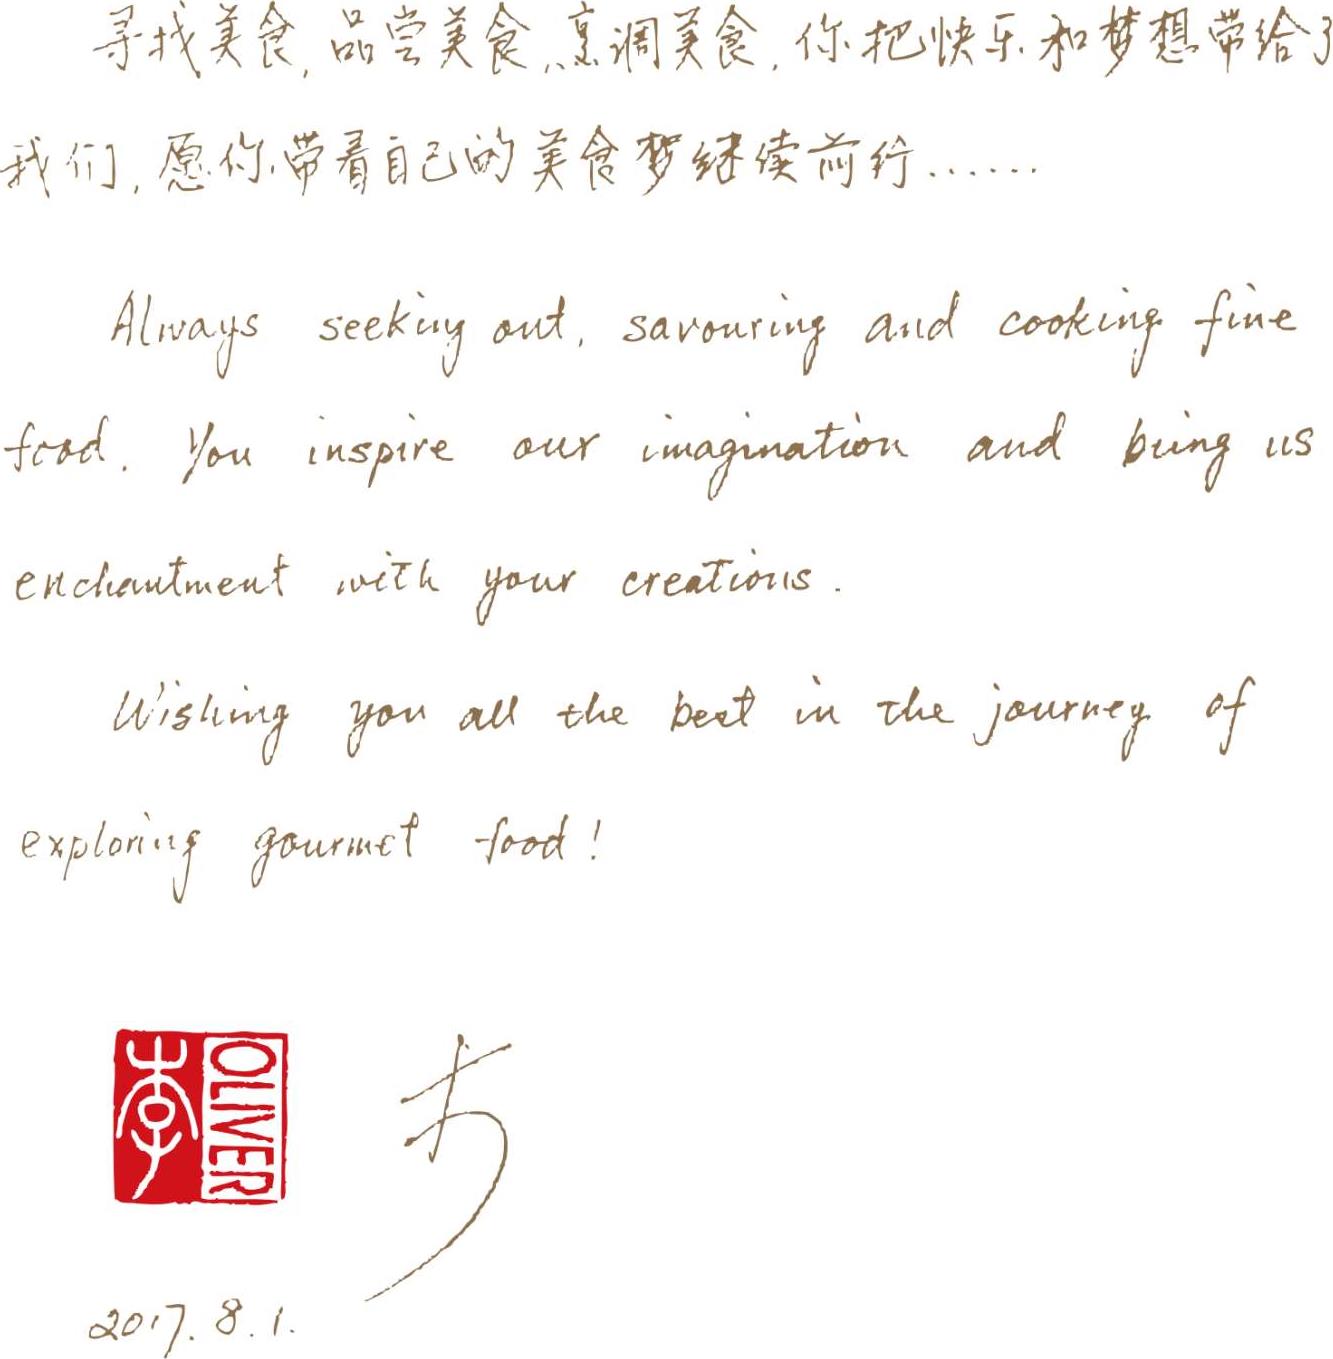 寻找美食,品尝美食,烹调美食,你把快乐和梦想带给了
我们,愿你带着自己的美食梦继续前行......
Always seeking out, savouring and cooking fine
food. You inspire our imagination and bring us
enchantment with your creations.
Wishing you all the best in the journey of
exploring gourmet food!
李 OLIVER
2017.8.1.